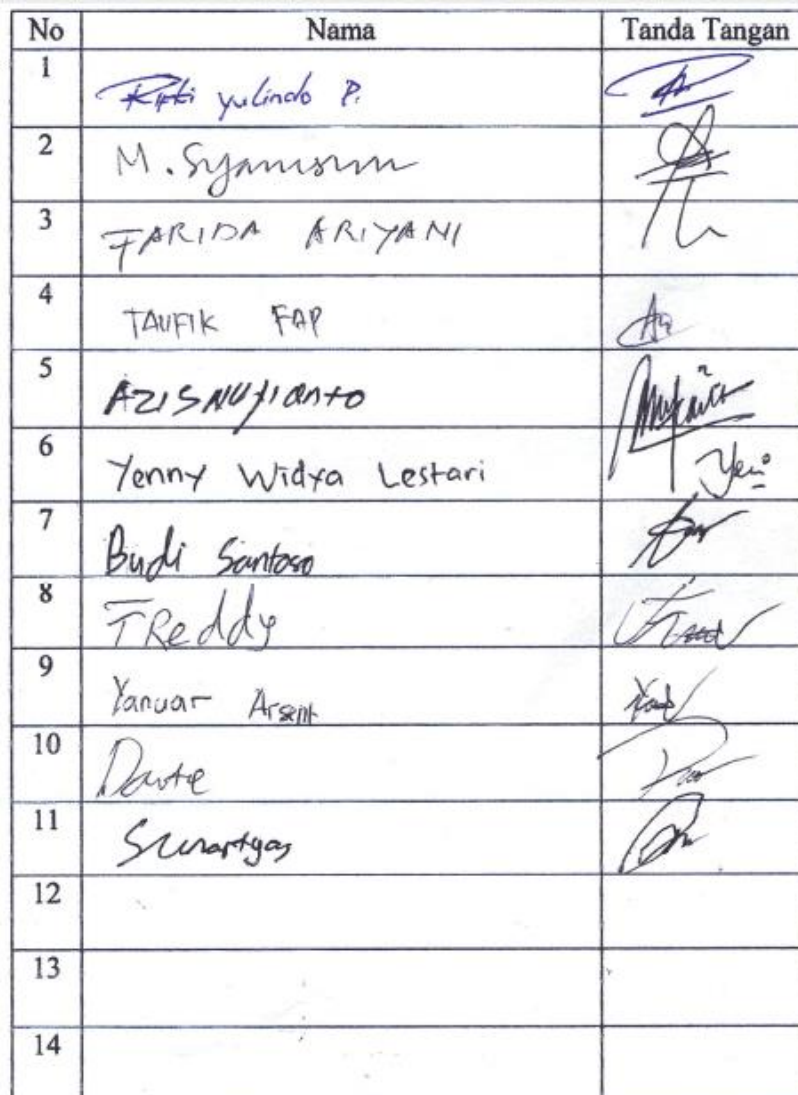 No Nama Tanda Tangan
1 Rifki yulindo P.
2 M. Syamsuri
3 FARIDA ARIYANI
4 TAUFIK FAP
5 AZIS NUYIANTO
6 Yenny Widya Lestari Yeni
7 Budi Santoso
8 FReddy
9 Yanuar
10 Dante
11
12
13
14